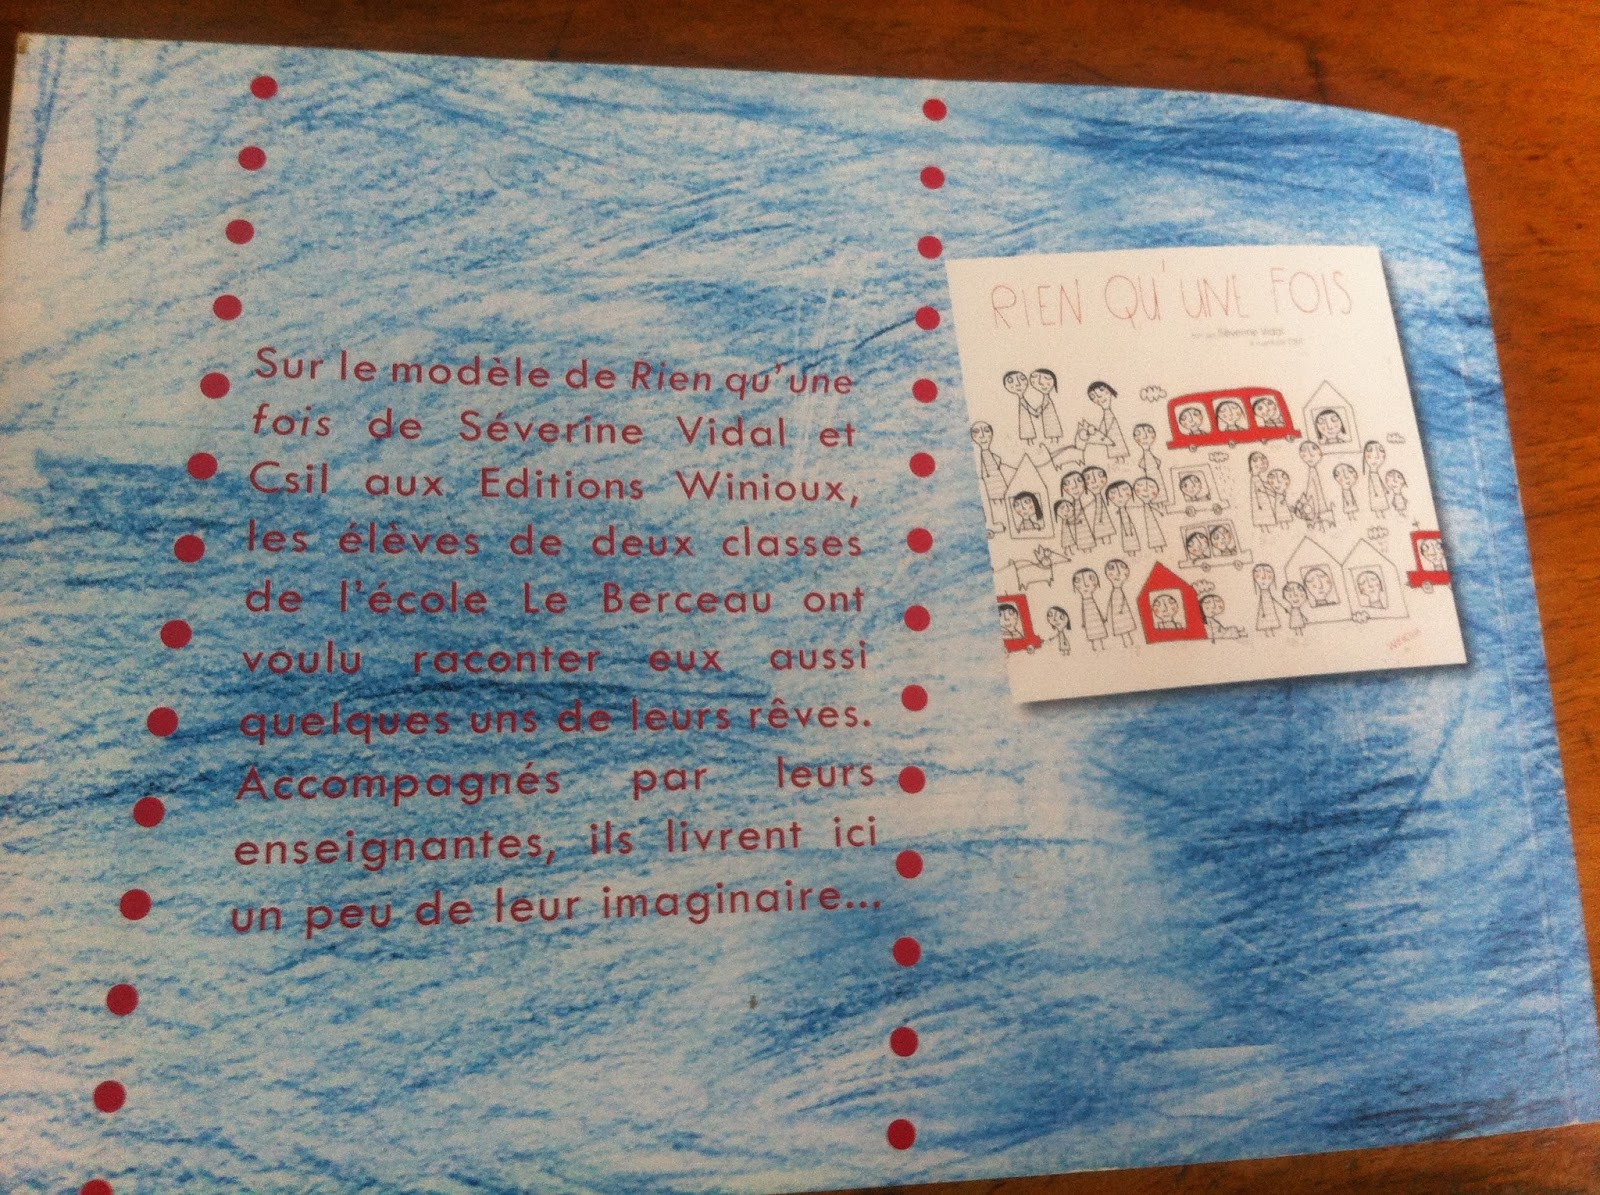 Sur le modèle de Rien qu'une
fois de Séverine Vidal et
Csil aux Editions Winioux,
les élèves de deux classes
de l'école Le Berceau ont
voulu raconter eux aussi
quelques uns de leurs rêves.
Accompagnés par leurs
enseignantes, ils livrent ici
un peu de leur imaginaire...
RIEN QU'UNE FOIS
Séverine Vidal